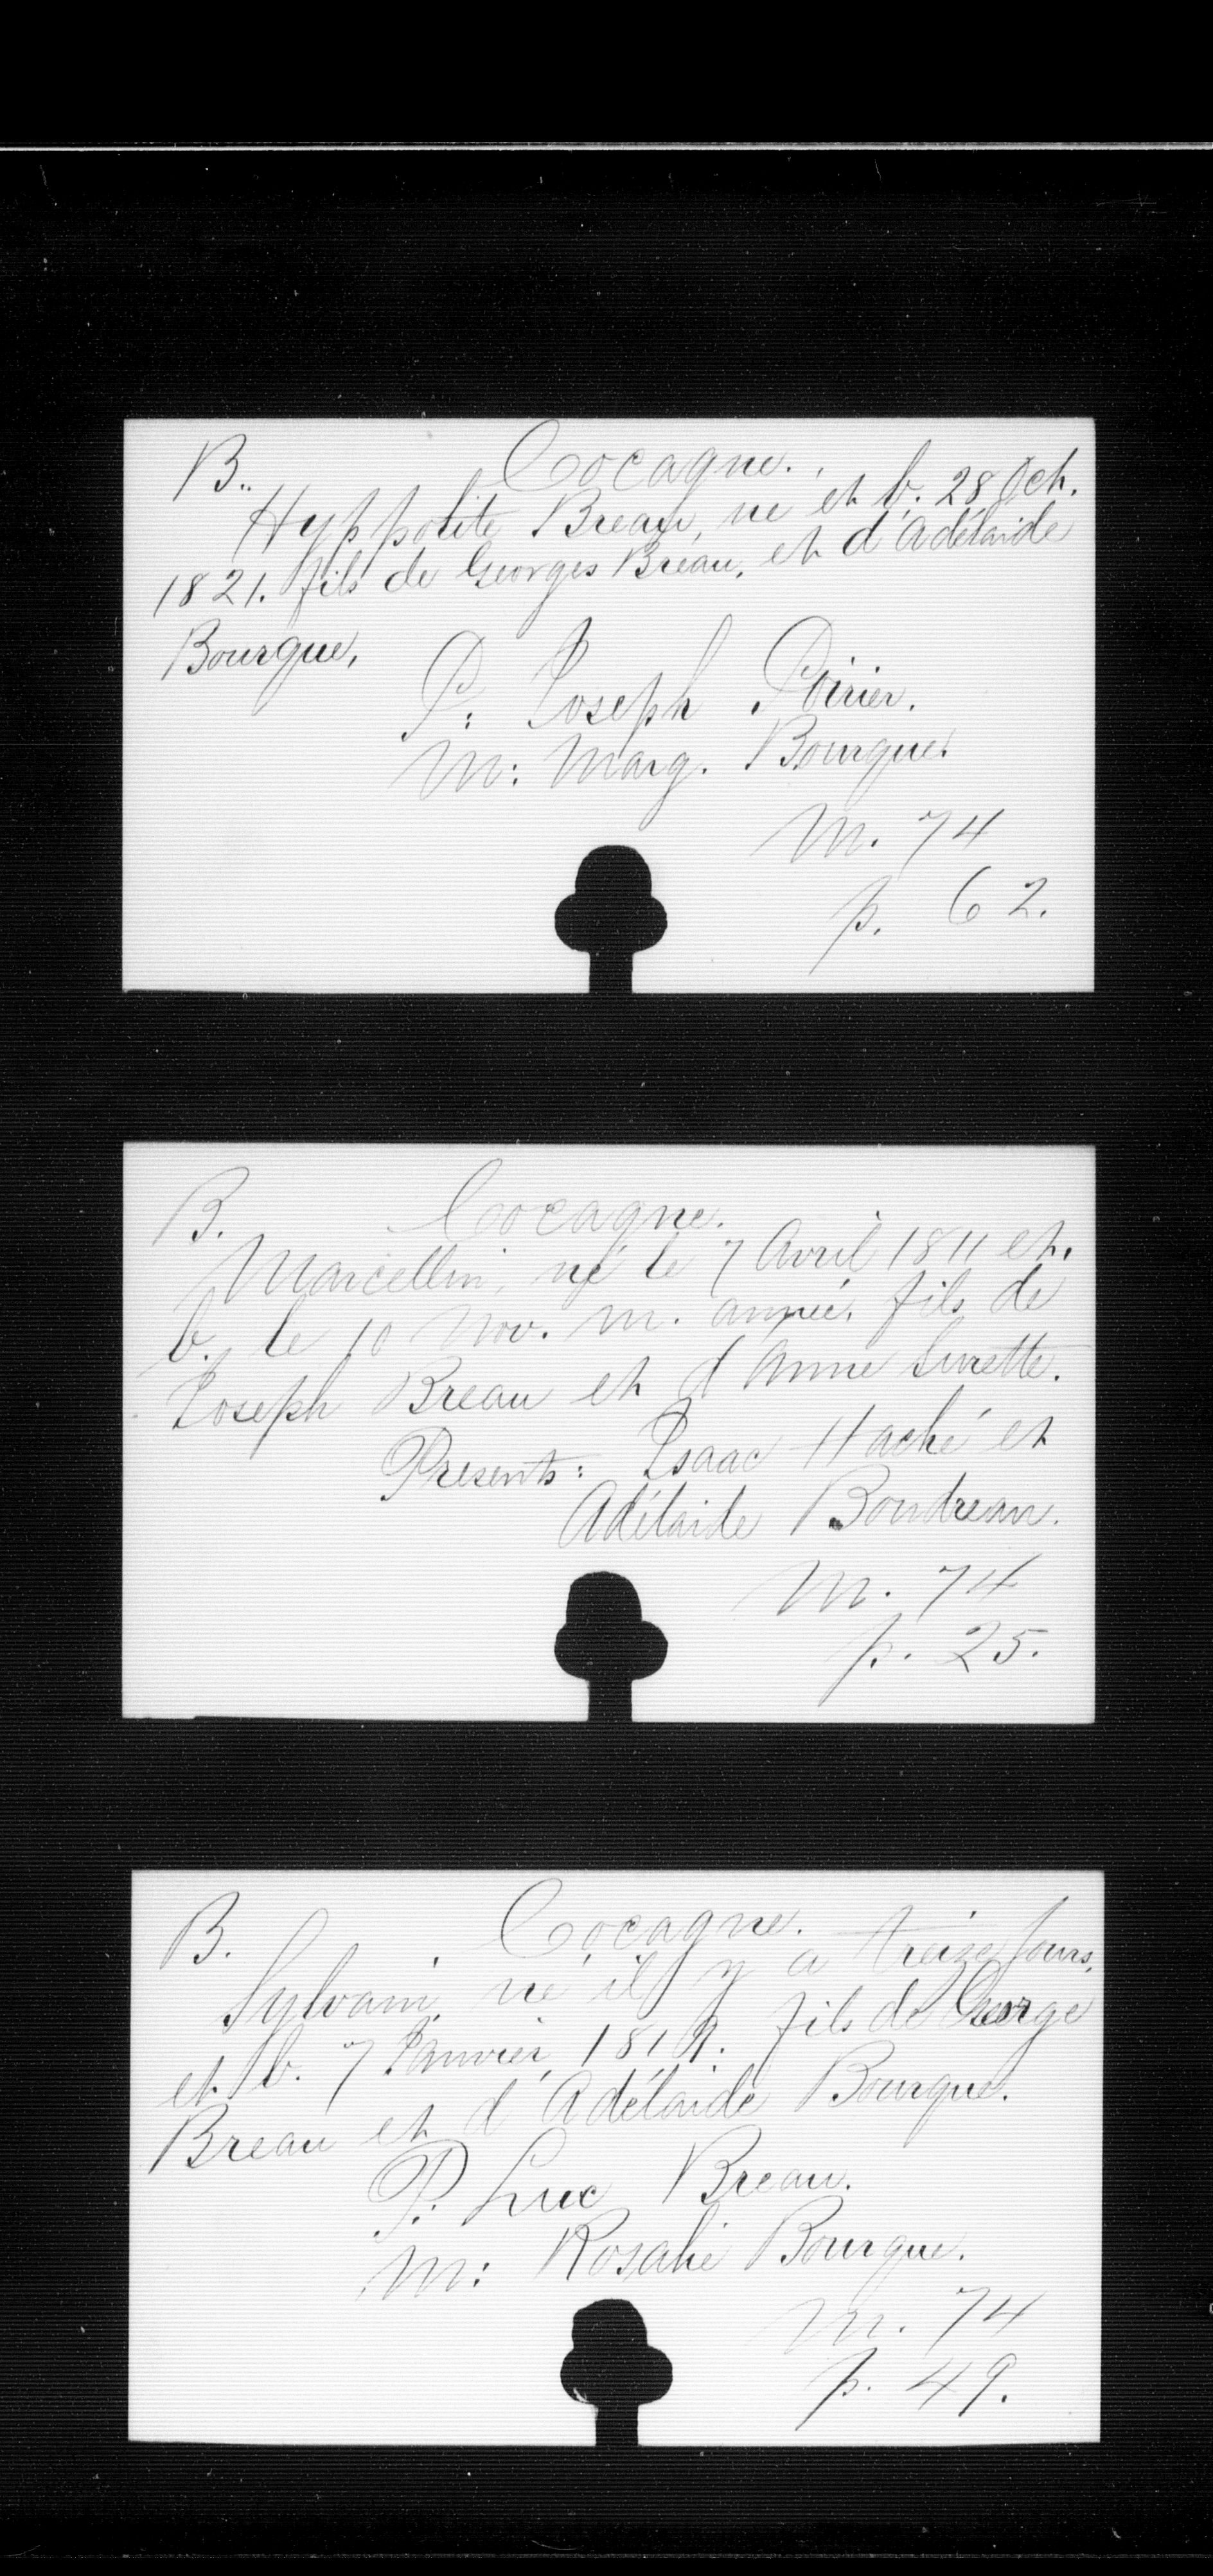 B.. Cocagne.
Hyppolite Breau, né et b. 28 Oct.
1821. fils de Georges Breau, et d'Adélaide
Bourque,
P: Joseph Poirier.
M: Marg. Bourque.
M. 74
p. 62.
B. Cocagne.
Marcellin, né le 7 Avril 1811 et.
b. le 10 Nov. m. année. fils de
Joseph Breau et d'Anne Surette.
Presents: Isaac Haché et
Adélaide Boudreau.
M. 74
p. 25.
B. Cocagne.
Sylvain, né il y a treize jours,
et b. 7 Janvier, 1819. fils de George
Breau et d'Adélaide Bourque.
P: Luc Breau.
M: Rosalie Bourque.
M. 74
p. 49.